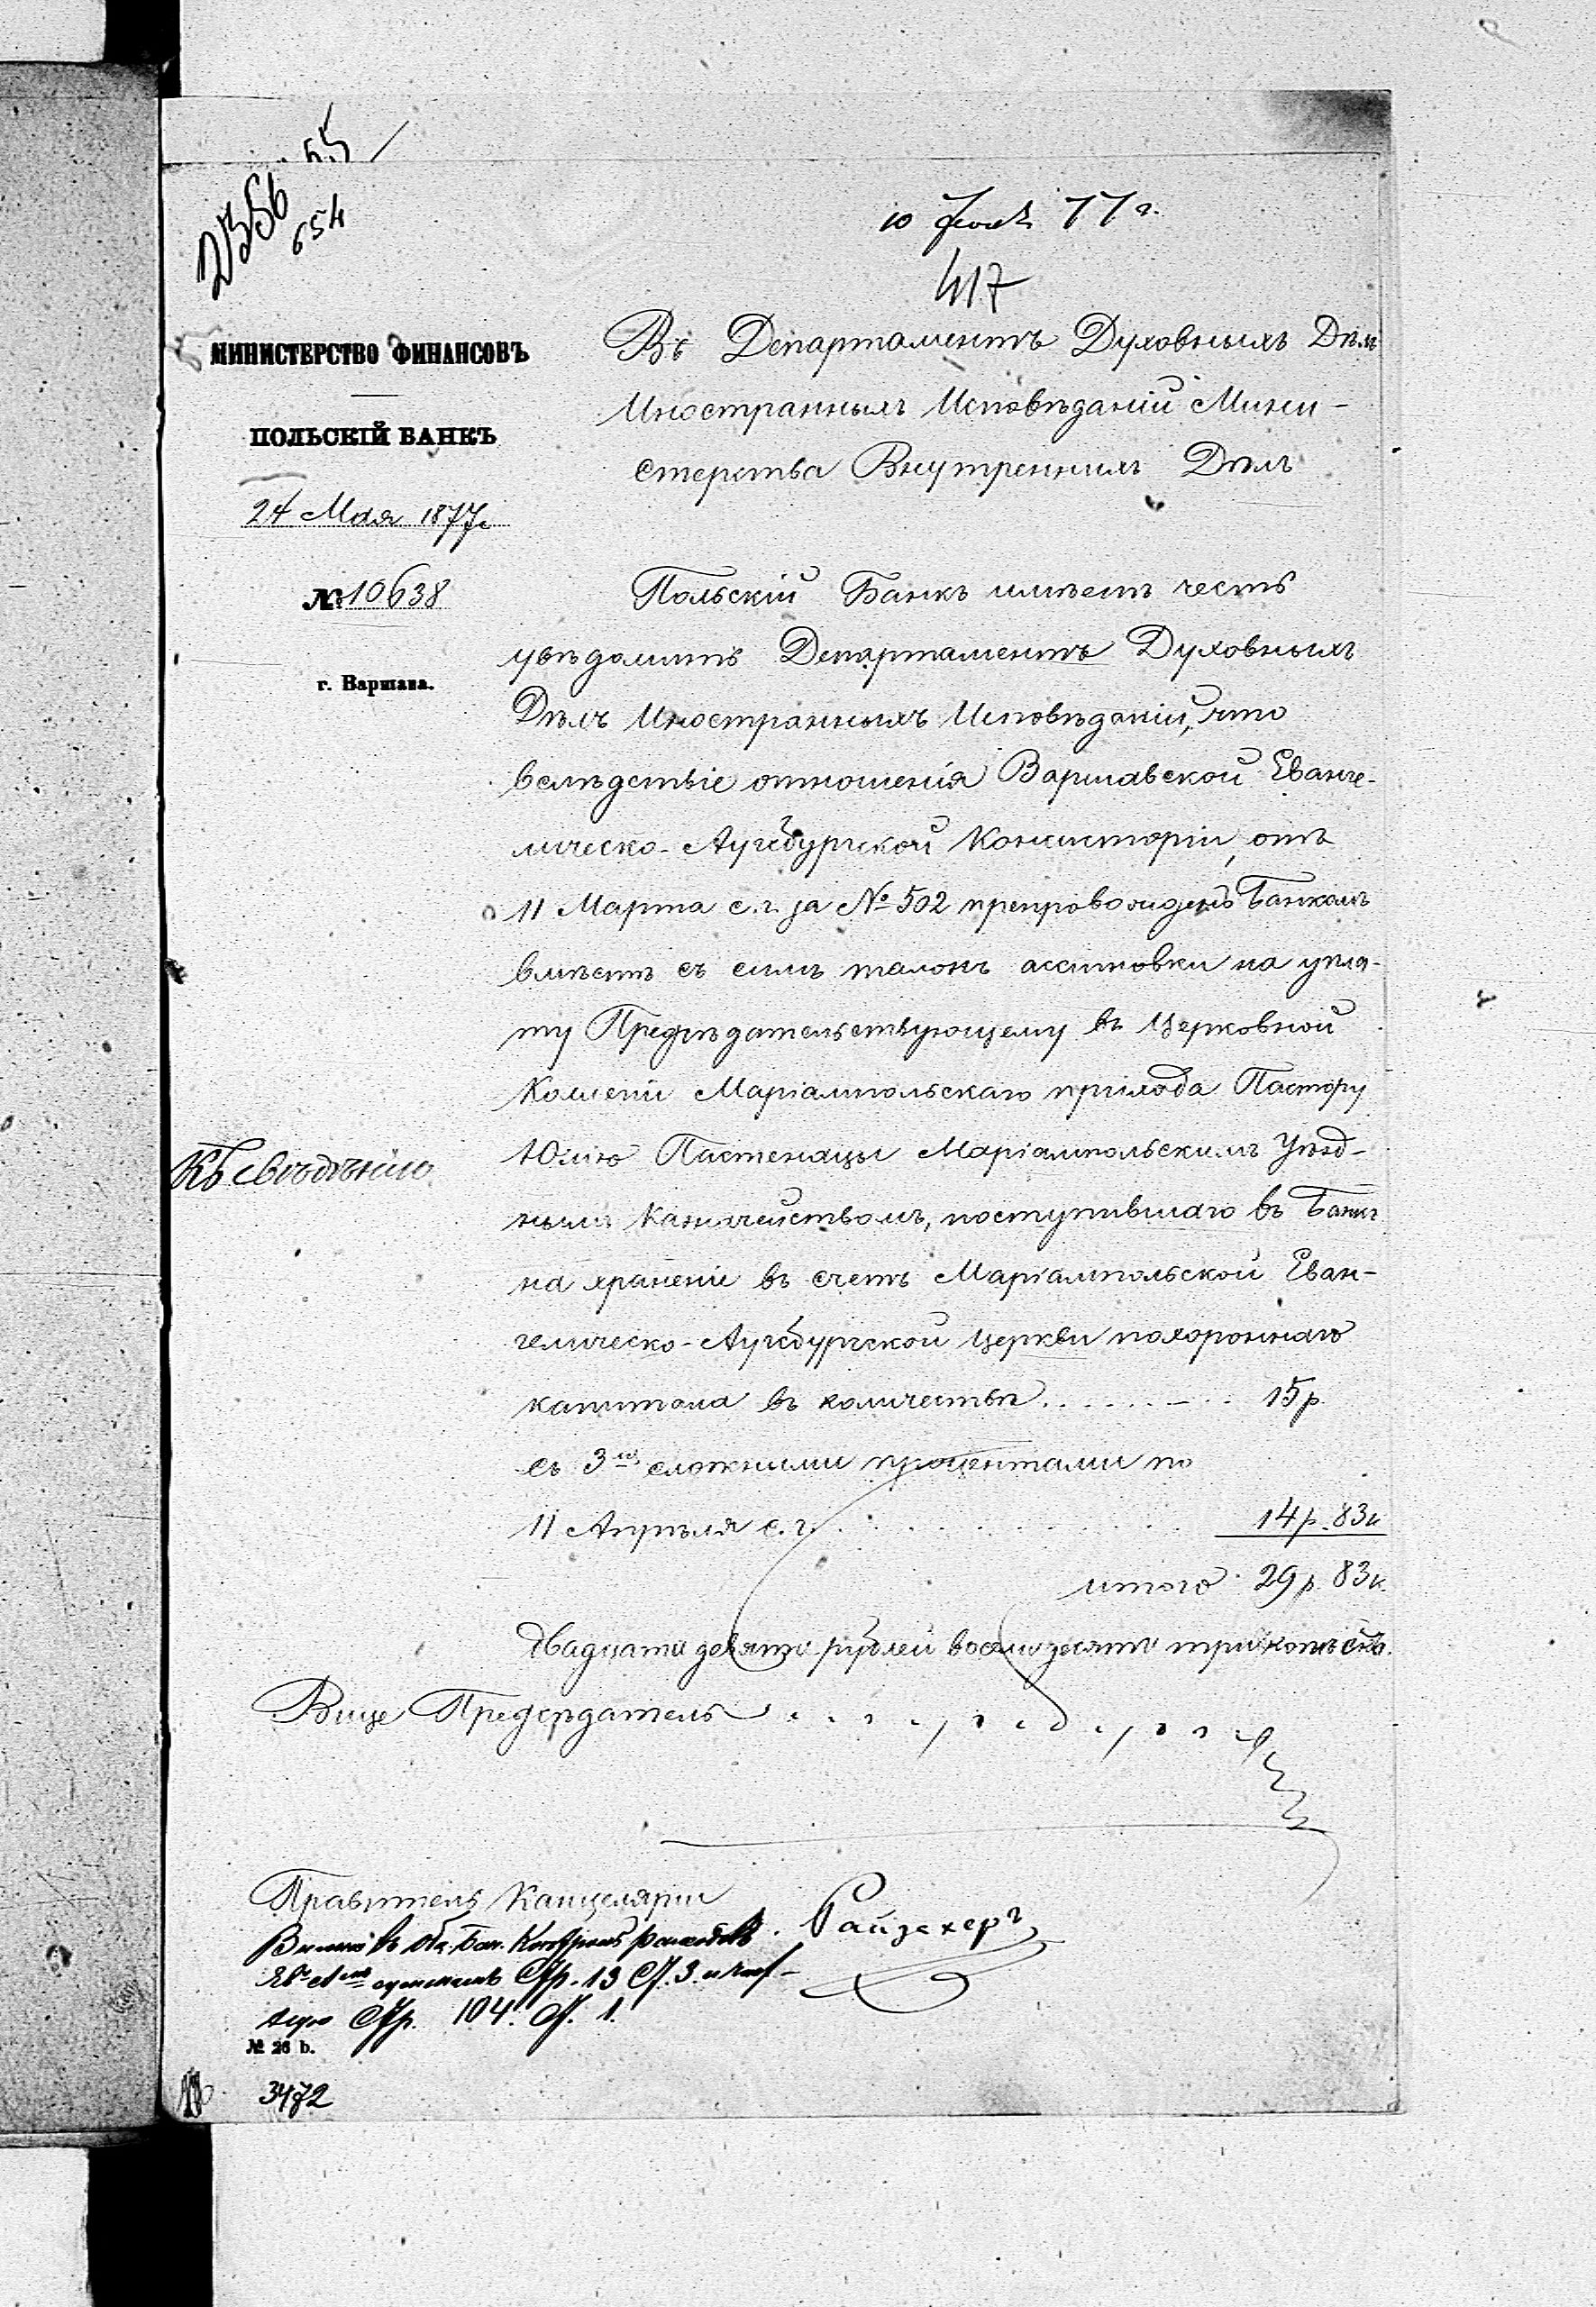 55
2356
654
10 Іюня 77 г.
417
МИНИСТЕРСТВО ФИНАНСОВЪ
ПОЛЬСКІЙ БАНКЪ
24 Мая 1877 г.
№ 10638
г. Варшава.
Въ Департаментъ Духовныхъ Дѣлъ
Иностранныхъ Исповѣданій Мини-
стерства Внутреннихъ Дѣлъ
Польскій Банкъ имѣетъ честь
увѣдомить Департаментъ Духовныхъ
Дѣлъ Иностранныхъ Исповѣданій, что
вслѣдствіе отношенія Варшавской Еванге-
лическо-Аугсбургской Консисторіи, отъ
11 Марта с.г. за № 502 препровожденъ Банкомъ
вмѣстѣ съ симъ талонъ ассигновки на упла-
ту Предсѣдательствующему въ Церковной
Коллегіи Маріампольскаго прихода Пастору
Юлію Пастенацы Маріампольскимъ Уѣзд-
нымъ Казначействомъ, поступившаго въ Банкъ
на храненіе въ счетъ Маріампольской Еван-
гелическо-Аугсбургской Церкви похороннаго
капитала въ количествѣ . . . . . . . 15 р.
съ 3% сложными процентами по
11 Апрѣля с.г. . . . . . . . . . . . 14 р. 83 к
итого 29 р. 83 к.
двадцать девять рублей восемьдесятъ три копѣйки.
Къ свѣдѣнію
Вице Предсѣдатель
Правитель Канцеляріи
Райзахеръ
Стр. 13 Ст. 3.
Стр. 104. Ст. 1.
№ 26 b.
3472